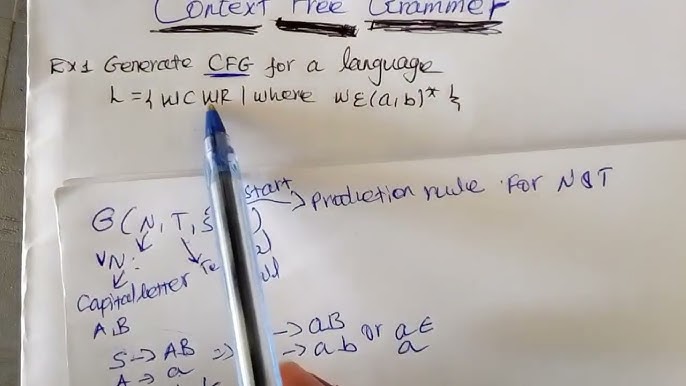 Context Free Grammer
Ex1 Generate CFG for a language
L = { WCWR | where WE(a,b)* }
start
G(N, T, S
Production rule for N & T
VN:
Capital letter
A,B
S → AB ⇒ → aB or aE
A → a → ab a